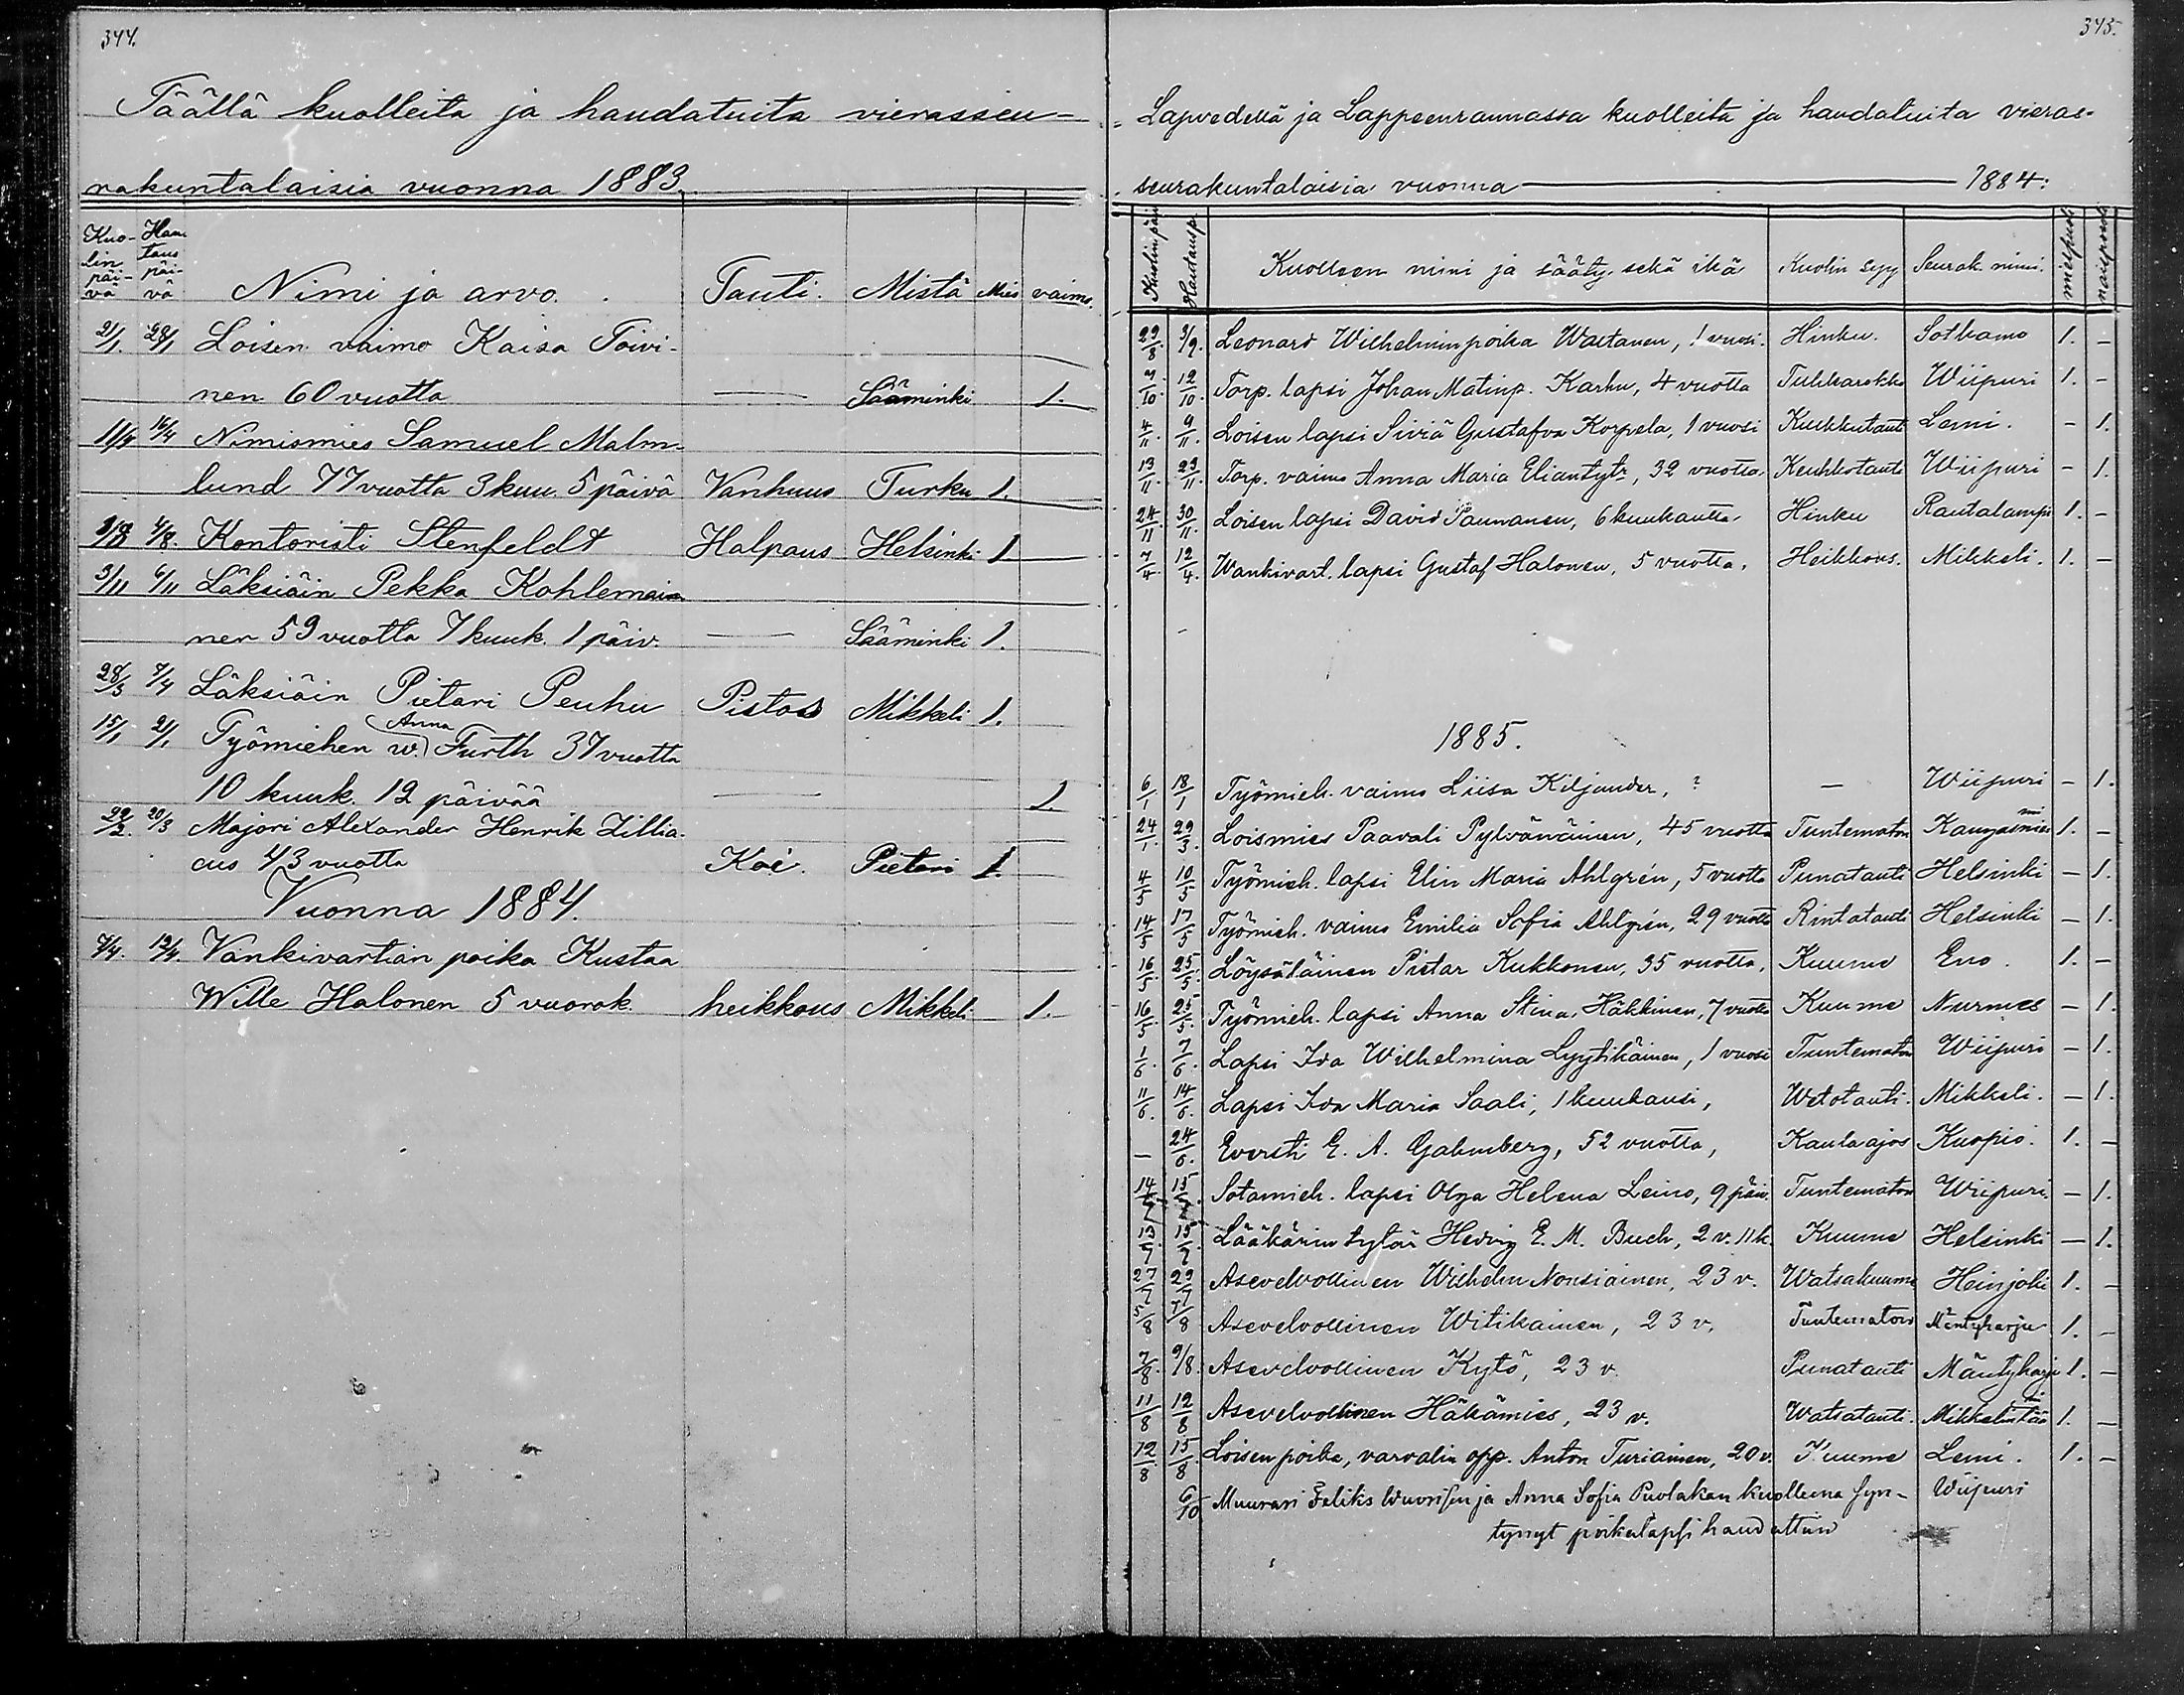 344.
Täällä kuolleita ja haudatuita vierasseu-
rakuntalaisia vuonna 1883.
Kuo-lin päi-vä Hau taus päi-vä Nimi ja arvo. Tauti. Mistä Mies vaimo.
21/1. 28/1 Loisen vaimo Kaisa Toivi-
nen 60 vuotta — Sääminki 1.
11/4 16/4 Nimismies Samuel Malm-
lund 77 vuotta 3 kuu. 5 päivä Vanhuus Turku 1.
4/8. Kontoristi Stenfeldt Halpaus Helsinki 1
3/11 6/11 Läksiäin Pekka Kohlemai
nen 59 vuotta 7 kuuk. 1 päiv. — Sääminki 1.
28/3 7/4 Läksiäin Pietari Peuhu Pistos Mikkeli 1.
15/1 21/1 Työmiehen w. Anna Furth 37 vuotta
10 kuuk. 12 päivää — 1.
22/2. 20/3 Majori Alexander Henrik Zillia-
cus 43 vuotta Koi. Pietari 1.
Vuonna 1884.
7/4. 12/4. Vankivartian poika Kustaa
Wille Halonen 5 vuorok. heikkous Mikkeli 1.
345.
Lapvedellä ja Lappeenrannassa kuolleita ja haudatuita vieras-
seurakuntalaisia vuonna — 1884:
Kuolinpäi Hautausp. Kuolleen nimi ja sääty sekä ikä Kuolin syy Seurak. nimi. miespuoli naispuoli
29/8. 3/9. Leonard Wilhelminpoika Waltanen, 1 vuosi. Hinku. Sotkamo 1. —
7/10. 12/10. Torp. lapsi Johan Matinp. Karhu, 4 vuotta Tuhkarokko Wiipuri 1. —
4/11. 9/11. Loisen lapsi Siviä Gustafva Korpela, 1 vuosi Kurkkutauti Lemi. — 1.
13/11 23/11. Torp. vaimo Anna Maria Eliantytr, 32 vuotta. Keuhkotauti Wiipuri — 1.
24/11 30/11. Loisen lapsi David Paunanen, 6 kuukautta. Hinku Rautalampi 1. —
7/4. 12/4. Wankivart. lapsi Gustaf Halonen, 5 vuotta. Heikkous. Mikkeli. 1. —
1885.
6/1 18/1 Työmieh. vaimo Liisa Kiljander, ? — Wiipuri — 1.
24/1. 29/3. Loismies Paavali Pylvänäinen, 45 vuotta Tuntematon Kangasniemi 1. —
4/5 10/5 Työmieh. lapsi Elin Maria Ahlgrén, 5 vuotta Punatauti Helsinki — 1.
14/5 17/5 Työmieh. vaimo Emilia Sofia Ahlgrén, 29 vuotta Rintatauti Helsinki — 1.
16/5. 25/5. Löysäläinen Pietar Kukkonen, 35 vuotta. Kuume Eno. 1. —
16/5. 25/5. Työmieh. lapsi Anna Stina Häkkinen, 7 vuotta Kuume Nurmes — 1.
1/6. 7/6. Lapsi Ida Wilhelmina Lyytikäinen, 1 vuosi Tuntematon Wiipuri — 1.
11/6. 14/6. Lapsi Ida Maria Saali, 1 kuukausi, Wetotauti. Mikkeli. — 1.
— 24/6. Eversti E. A. Gahmberg, 52 vuotta, Kaula ajos Kuopio. 1. —
14/7 15/7 Sotamieh. lapsi Olga Helena Leino, 9 päiv. Tuntematon Wiipuri. — 1.
13/7. 15/7. Lääkärin tytär Hedvig E. M. Buch, 2 v. 11 k. Kuume Helsinki — 1.
27/7 29/7 Asevelvollinen Wilhelm Nonsiainen, 23 v. Watsakuume Heinjoki 1. —
5/8 7/8 Asevelvollinen Witikainen, 23 v. Tuntematon Mäntyharju 1. —
7/8. 9/8. Asevelvollinen Kytö, 23 v. Punatauti Mäntyharju 1. —
11/8 12/8 Asevelvollinen Häkämies, 23 v. Watsatauti. 1. —
12/8 15/8 Loisen poika, varvalin opp. Anton Turiainen, 20 v. Kuume Lemi. 1. —
6/10 Muurari Feliks Wuorisen ja Anna Sofia Puolakan kuolleena syn- Wiipuri
tynyt poikalapsi haudattiin